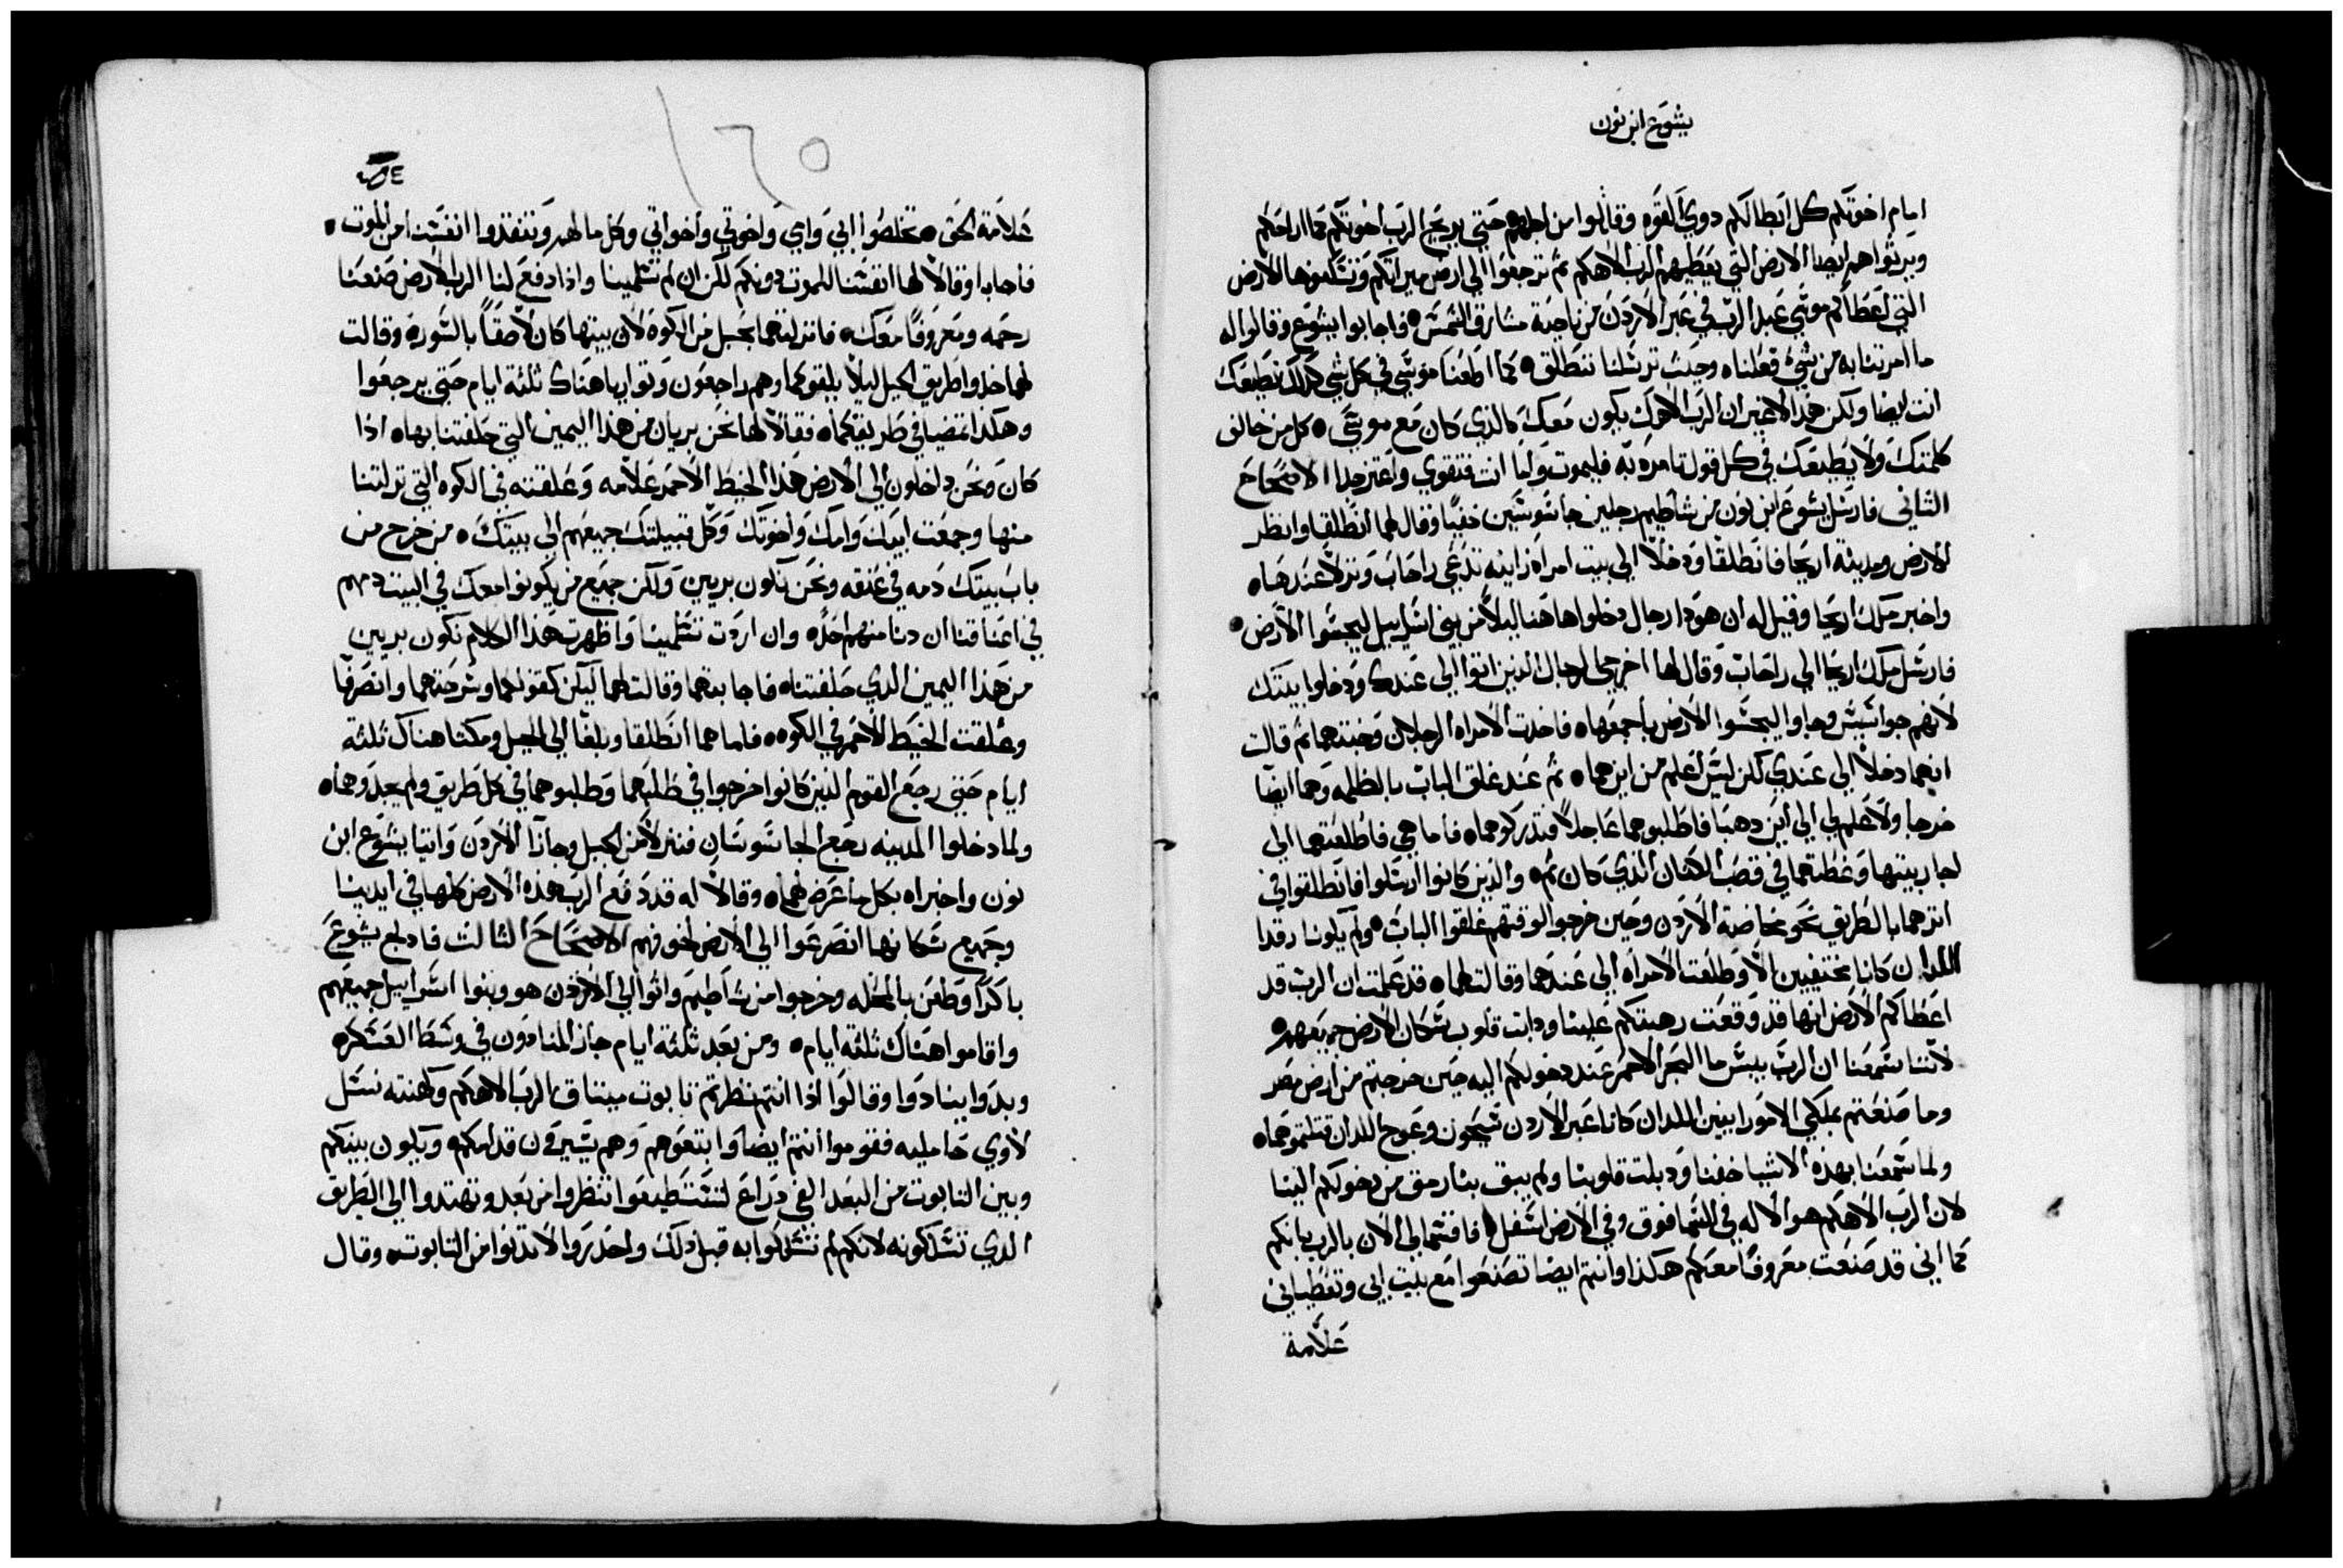 يشوع ابن نون
امام اخوتكم كل ابطالكم دوي القوه وقاتلوا من اجلهم حتي يريح الرب اخوتكم كما اراحكم
ويرثوا هم ايضا الارض التي يعطيهم الرب الاهكم ثم ترجعوا الي ارض ميراثكم وتسكنوها الارض
التي اعطاكم موسي عبد الرب في عبر الاردن من ناحية مشارق الشمس ٥ فاجابوا يشوع وقالوا له
ما امرتنا به من شي فعلناه وحيث ترسلنا ننطلق ٥ كما اطعنا موسي في كل شي كذلك نطيعك
انت ايضا ولكن هذا لاغير ان الرب الاهك يكون معك كالذي كان مع موسي ٥ كل من خالف
كلمتك ولا يطيعك في كل قول تامره به فليموت واما انت فتقوي واعتز جدا الاصحاح
الثاني فارسل يشوع ابن نون من شاطيم رجلين جاسوسين خفيا وقال لهما انطلقا وانظر
الارض ومدينة اريحا فانطلقا ودخلا الي بيت امراه زانيه تدعي راحاب ونزلا عندها ٥
واخبر ملك اريحا وقيل له ان هودا رجال دخلوا هاهنا ليلا من بني اسراييل ليجسوا الارض ٥
فارسل ملك اريحا الي راحاب وقال لها اخرجي الرجال الذين اتوا الي عندك ودخلوا بيتك
لانهم جواسيس وجاوا ليجسوا الارض باجمعها ٥ فاخدت الامراه الرجلان وخبتهما ثم قالت
انهما دخلا الي عندي لكن ليس اعلم من اين هما ٥ ثم عند غلق الباب بالظلمه وهما ايضا
خرجا ولا علم لي الي اين دهبا فاطلبوهما عاجلا فتدركوهما ٥ فاما هي فاطلعتهما الي
اجار بيتها وغطتهما في قصب الكتان الذي كان ثم ٥ والذين كانوا ارسلوا فانطلقوا في
اثرهما بالطريق نحو مخاضة الاردن وحين خرجوا لوقتهم غلقوا الباب ٥ ولم يكونا رقدا
اللدان كانا مختفيين الا وطلعت الامراه الي عندهما وقالت لهما ٥ قد علمت ان الرب قد
اعطاكم الارض انها قد وقعت رهبتكم علينا ودابت قلوب سكان الارض جميعهم ٥
لاننا سمعنا ان الرب ييبس ما البحر الاحمر عند دخولكم اليه حين خرجتم من ارض مصر
وما صنعتم بملكي الامورانيين اللدان كانا عبر الاردن سيحون وعوج اللدان قتلتموهما ٥
ولما سمعنا بهذه الاشيا خفنا ودبلت قلوبنا ولم يبق بنا رمق من دخولكم الينا
لان الرب الاهكم هو الاله في السما فوق وفي الارض اسفل ٥ فاقسما لي الان بالرب بانكم
كما اني قد صنعت معروفا معكم هكذا وانتم ايضا تصنعوا مع بيت ابي وتعطياني
علامة
١٦٥
علامة الحق ٥ تخلصوا ابي وامي واخوتي واخواتي وكل ما لهم وتنقدوا انفسنا من الموت ٥
فاجابا وقالا لها انفسنا للموت دونكم لكن ان لم تسلمينا واذا دفع لنا الرب الارض صنعنا
رحمه ومعروفا معك ٥ فانزلتهما بحبل من الكوة لان بيتها كان لاصقا بالسور ٥ وقالت
لهما خدوا طريق الجبل ليلا يلقوكما وهم راجعون وتواريا هناك ثلثة ايام حتي يرجعوا
وهكذا تمضيا في طريقكما ٥ فقالا لها نحن بريان من هذا اليمين التي حلفتنا بها ٥ اذا
كان ونحن داخلون الي الارض هذا الخيط الاحمر علامه وعلقته في الكوه التي نزلتنا
منها وجمعت ابيك وامك واخوتك وكل قبيلتك جميعهم الي بيتك ٥ من خرج من
باب بيتك دمه في عنقه ونحن نكون بريين ولكن جميع من يكونوا معك في البيت دمهم
في اعناقنا ان دنا منهم احد ٥ وان اردت تسلمينا واظهرت هذا الكلام نكون بريين
من هذا اليمين الذي حلفتنا ٥ فاجابتهما وقالت لهما ليكن كقولكما وسرحتهما وانصرفا
وعلقت الخيط الاحمر في الكوه ٥ فاما هما انطلقا وبلغا الي الجبل ومكثا هناك ثلثة
ايام حتي رجع القوم الذين كانوا خرجوا في طلبهما وطلبوهما في كل طريق ولم يجدوهما ٥
ولما دخلوا المدينه رجع الجاسوسان فنزلا من الجبل وجازا الاردن واتيا يشوع ابن
نون واخبراه بكل ما عرض لهما ٥ وقالا له قد دفع الرب هذه الارض كلها في ايدينا
وجميع سكانها انصرعوا الي الارض لخوفهم الاصحاح الثالث فادلج يشوع
باكرا وظعن بالمحله وخرجوا من شاطيم واتوا الي الاردن هو وبنوا اسراييل جميعهم
واقاموا هناك ثلثة ايام ٥ ومن بعد ثلثة ايام جاز المنادون في وسط العسكر ٥
وبدوا ينادوا وقالوا اذا انتم نظرتم تابوت ميثاق الرب الاهكم وكهنته نسل
لاوي حامليه فقوموا انتم ايضا وابتعوهم وهم يسيرون قدامكم ٥ ويكون بينكم
وبين التابوت من البعد الفي دراع لتستطيعوا تنظروا من بعد وتهتدوا الي الطريق
الذي تسلكونه لانكم لم تسلكوا به قبل ذلك واحذروا لا تدنوا من التابوت ٥ وقال